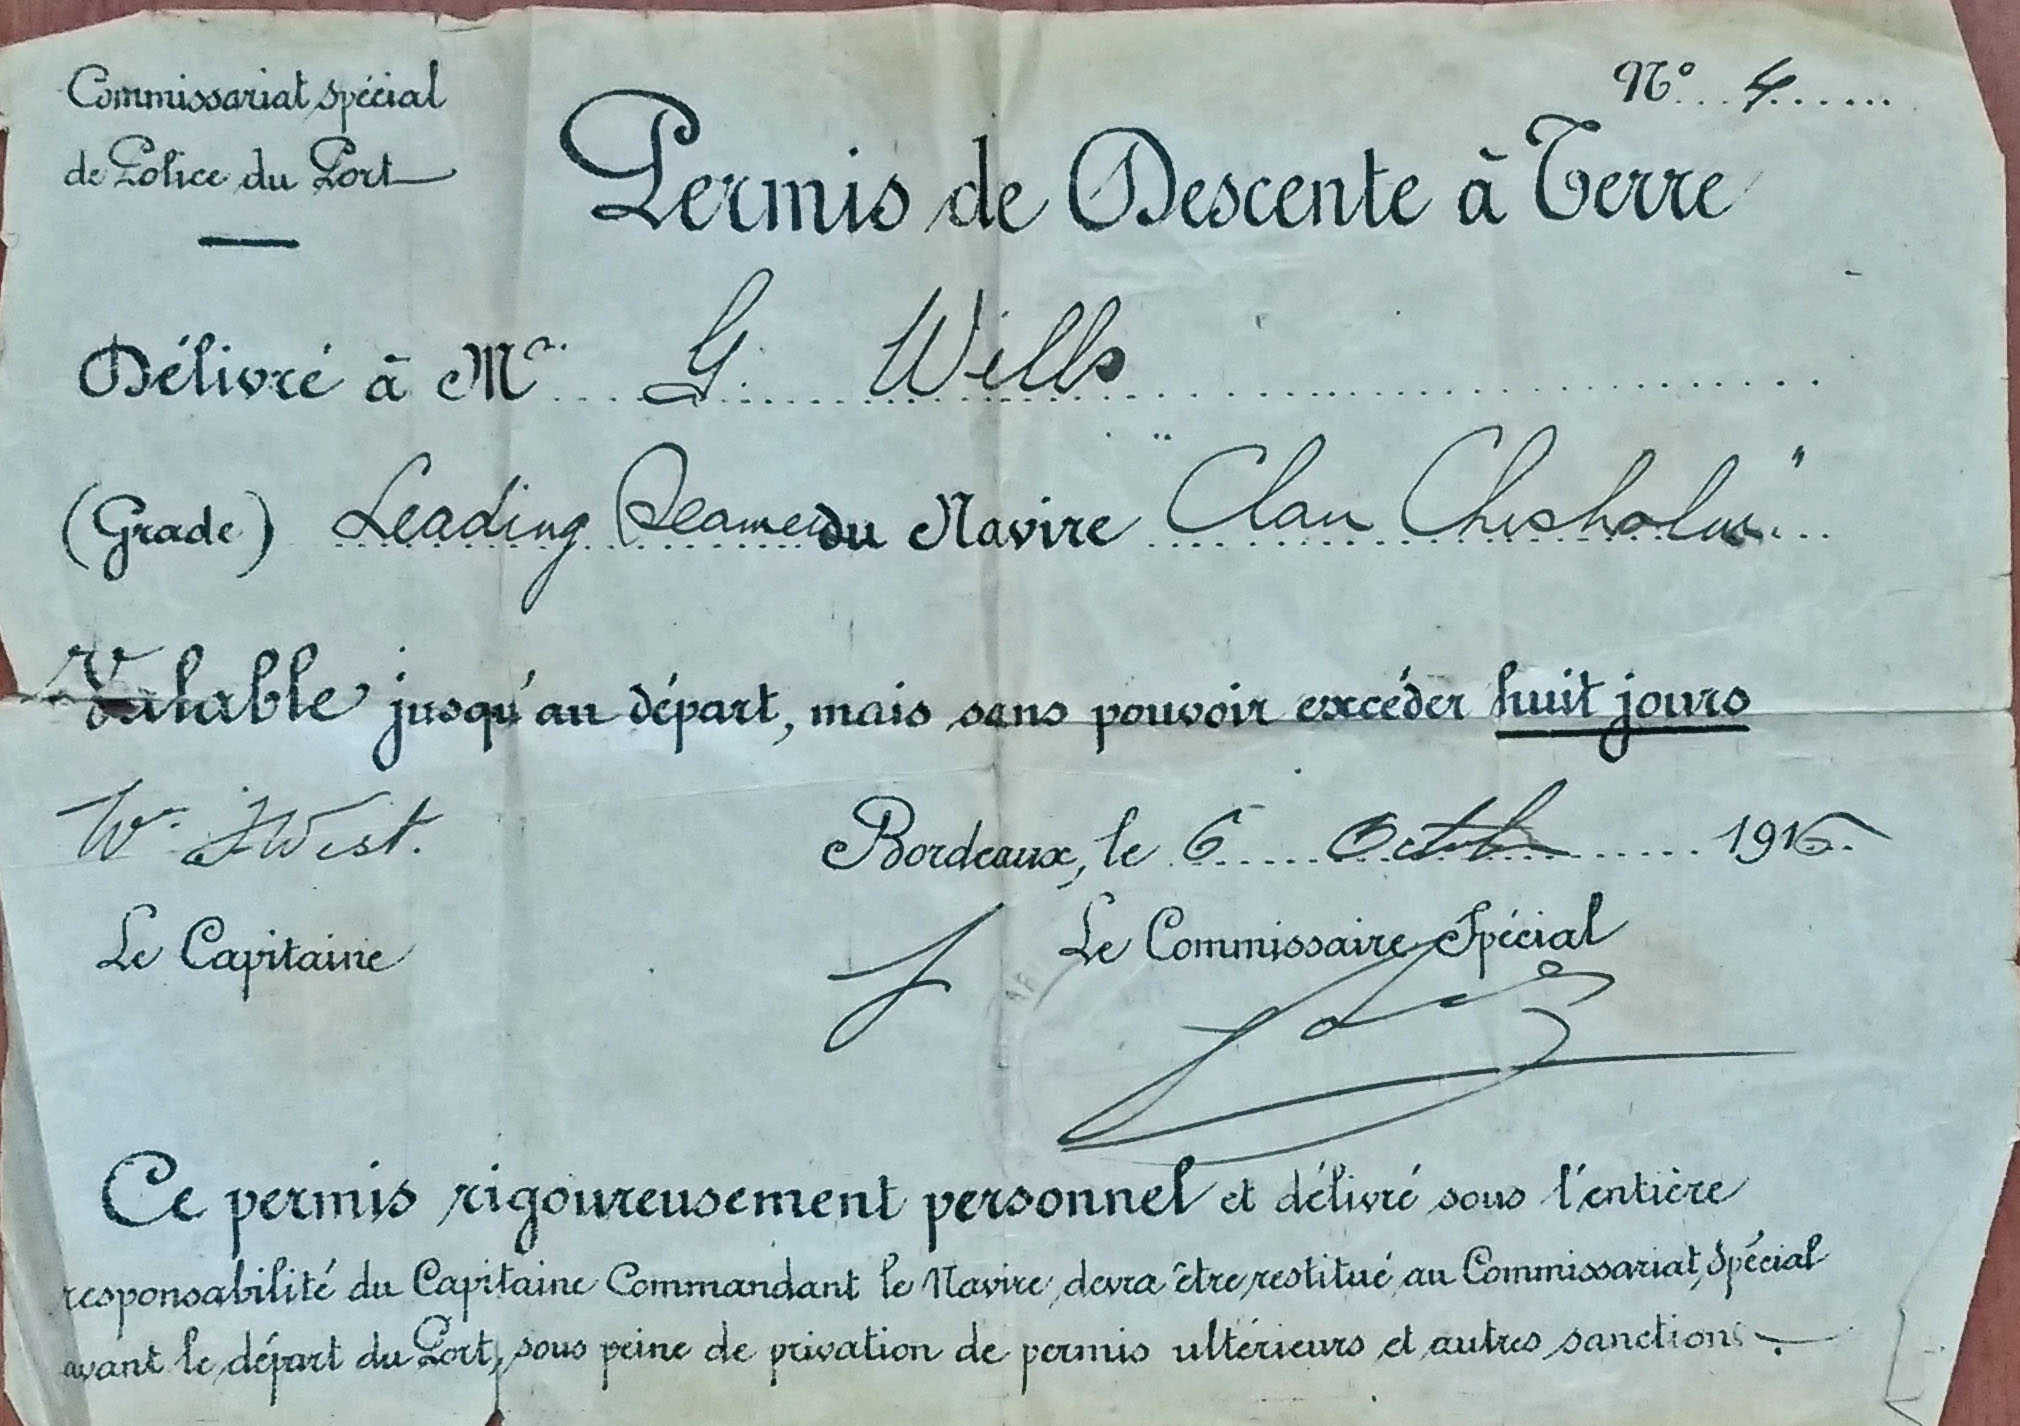 Commissariat spécial
de Police du Port
N° 4
Permis de Descente à Terre
Délivré à Mr G. Wills
(Grade) Leading Seamen du Navire "Clan Chisholm"
Valable jusqu'au départ, mais sans pouvoir excéder huit jours
W. J West.
Bordeaux, le 6 Octobre 1916
Le Capitaine
Le Commissaire Spécial
Ce permis rigoureusement personnel et délivré sous l'entière
responsabilité du Capitaine Commandant le Navire devra être restitué au Commissariat Spécial
avant le départ du Port, sous peine de privation de permis ultérieurs et autres sanctions.